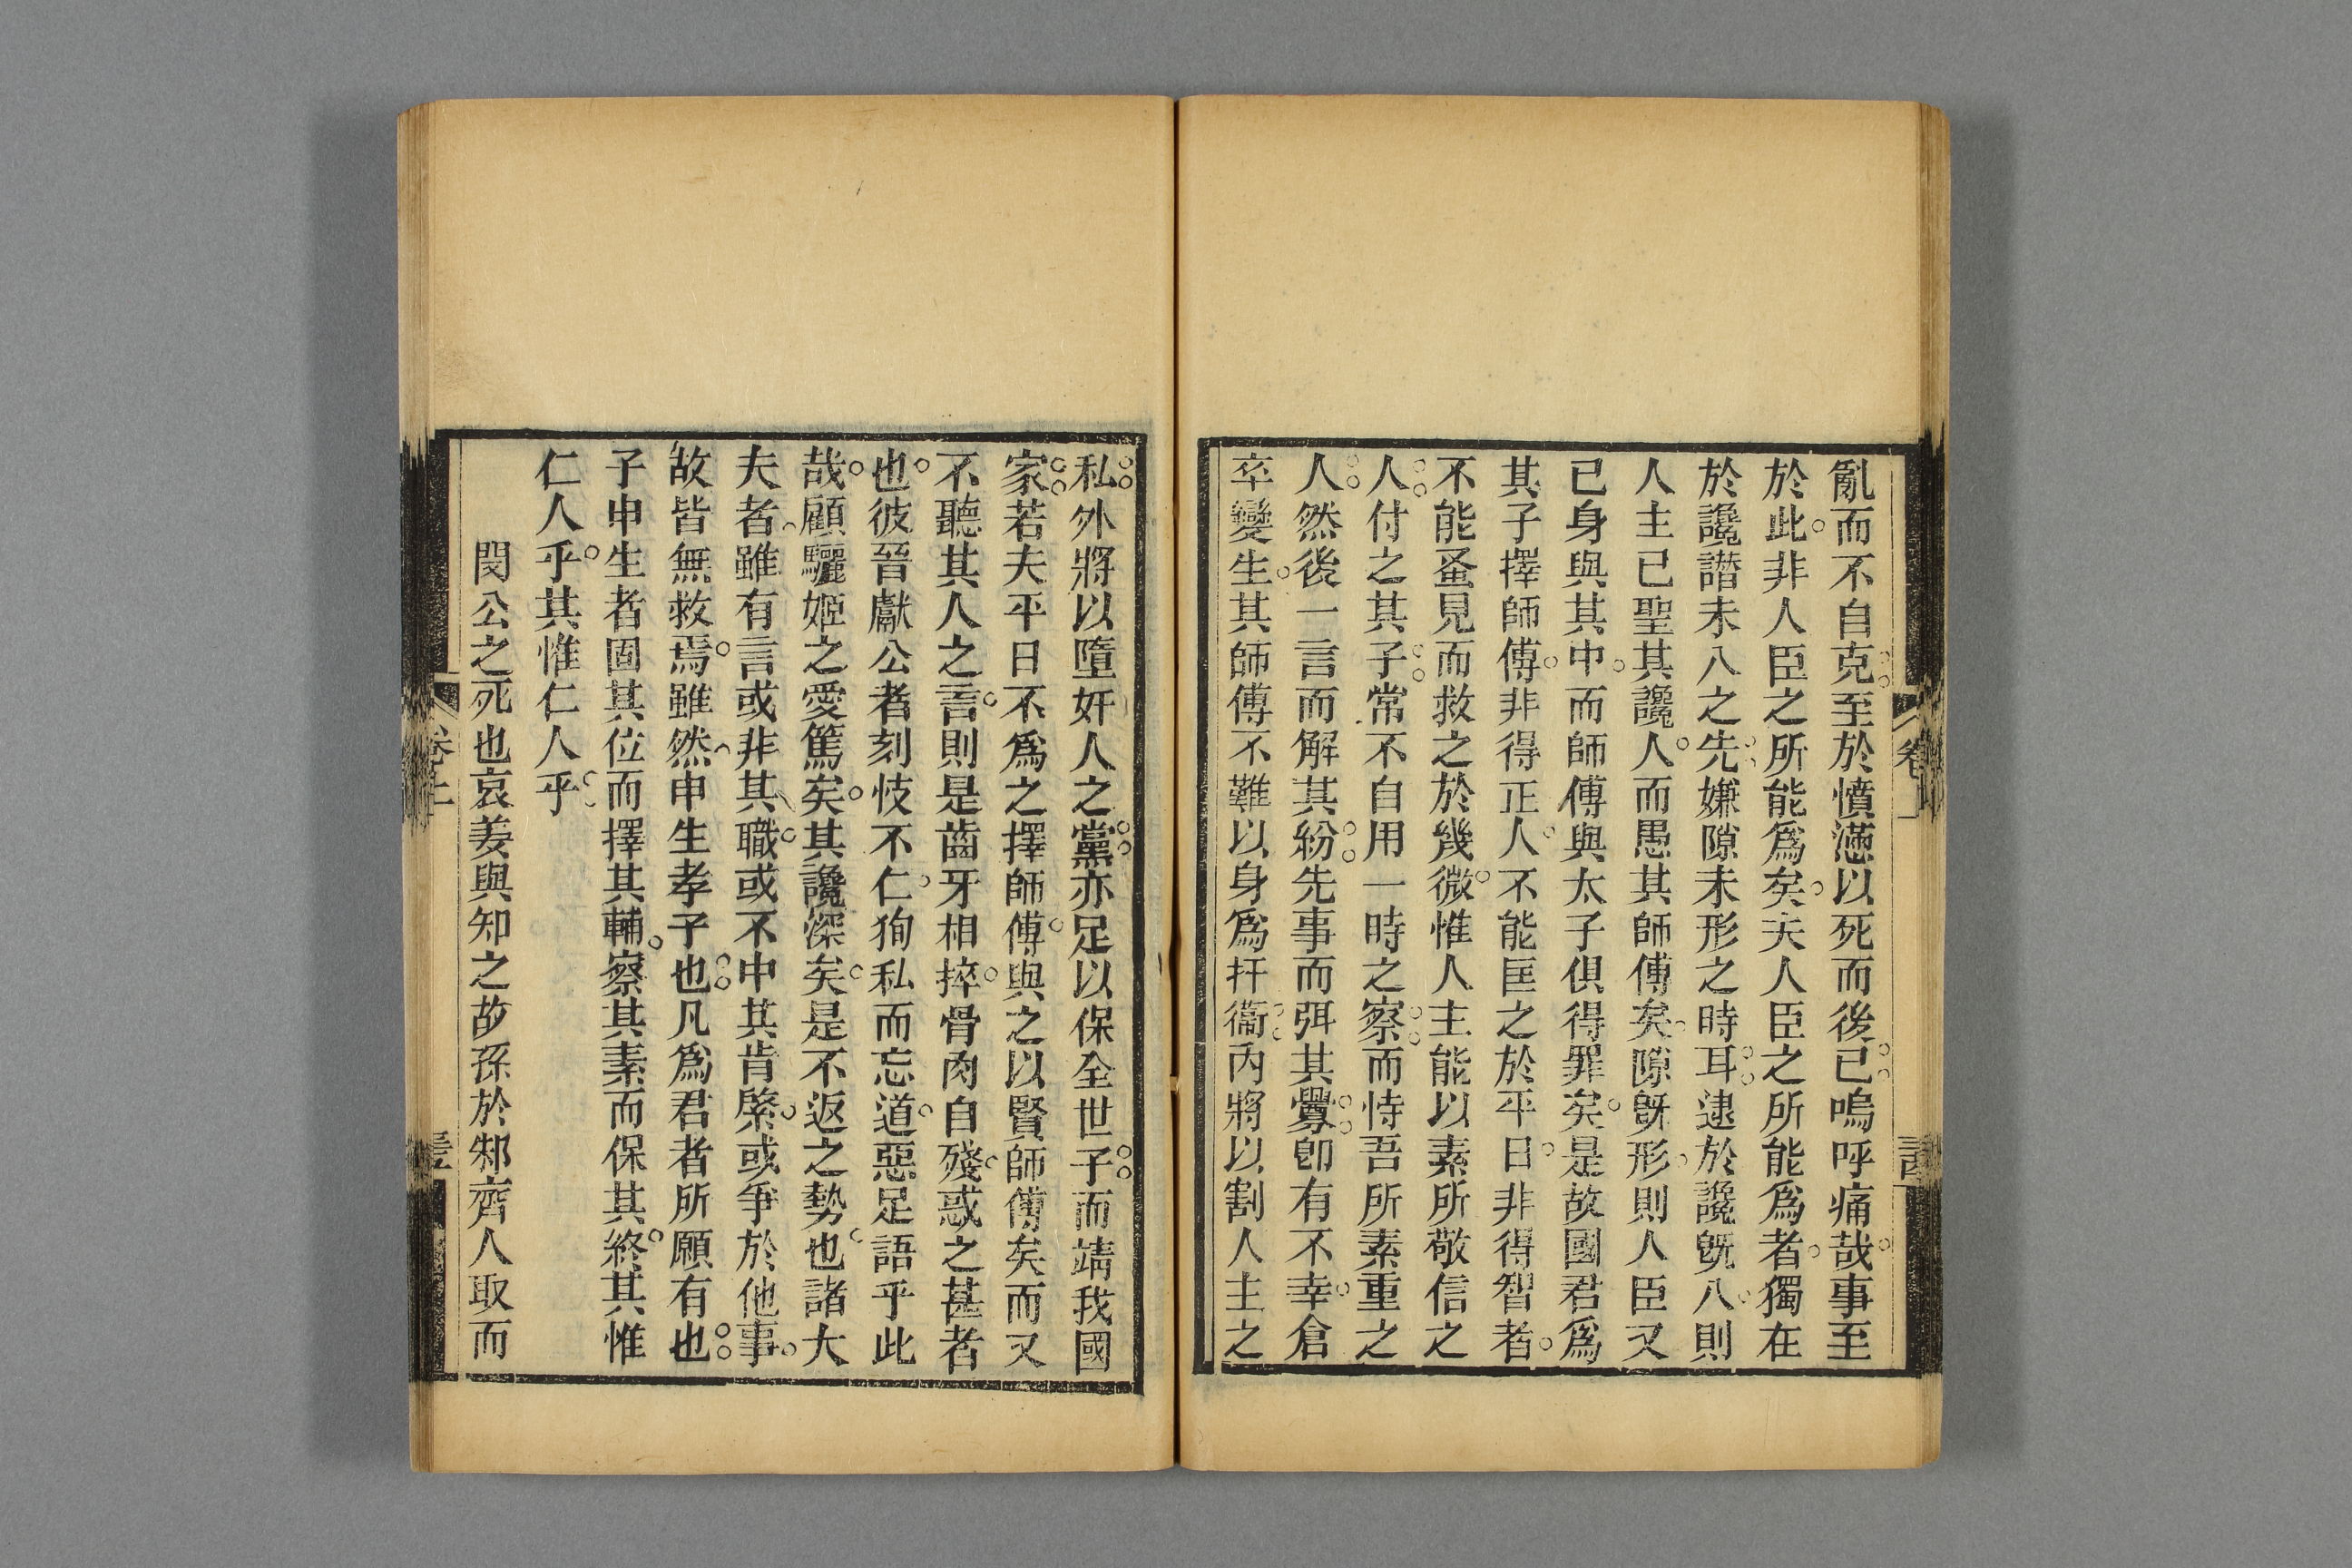 亂而不自克至於憤懣以死而後已嗚呼痛哉事至
於此非人臣之所能爲矣夫人臣之所能爲者獨在
於讒譖未入之先嫌隙未形之時耳逮於讒旣入則
人主已聖其讒人而愚其師傅矣隙旣形則人臣又
已身與其中而師傅與太子俱得罪矣是故國君爲
其子擇師傅非得正人不能匡之於平日非得智者
不能蚤見而救之於幾微惟人主能以素所敬信之
人付之其子常不自用一時之察而恃吾所素重之
人然後一言而解其紛先事而弭其釁卽有不幸倉
卒變生其師傅不難以身爲扞衞內將以割人主之
私外將以墮奸人之黨亦足以保全世子而靖我國
家若夫平日不爲之擇師傅與之以賢師傅矣而又
不聽其人之言則是齒牙相捽骨肉自殘惑之甚者
也彼晉獻公者刻忮不仁狥私而忘道惡足語乎此
哉顧驪姬之愛篤矣其讒深矣是不返之勢也諸大
夫者雖有言或非其職或不中其肯綮或爭於他事
故皆無救焉雖然申生孝子也凡爲君者所願有也
子申生者固其位而擇其輔察其素而保其終其惟
仁人乎其惟仁人乎
閔公之死也哀姜與知之故孫於邾齊人取而